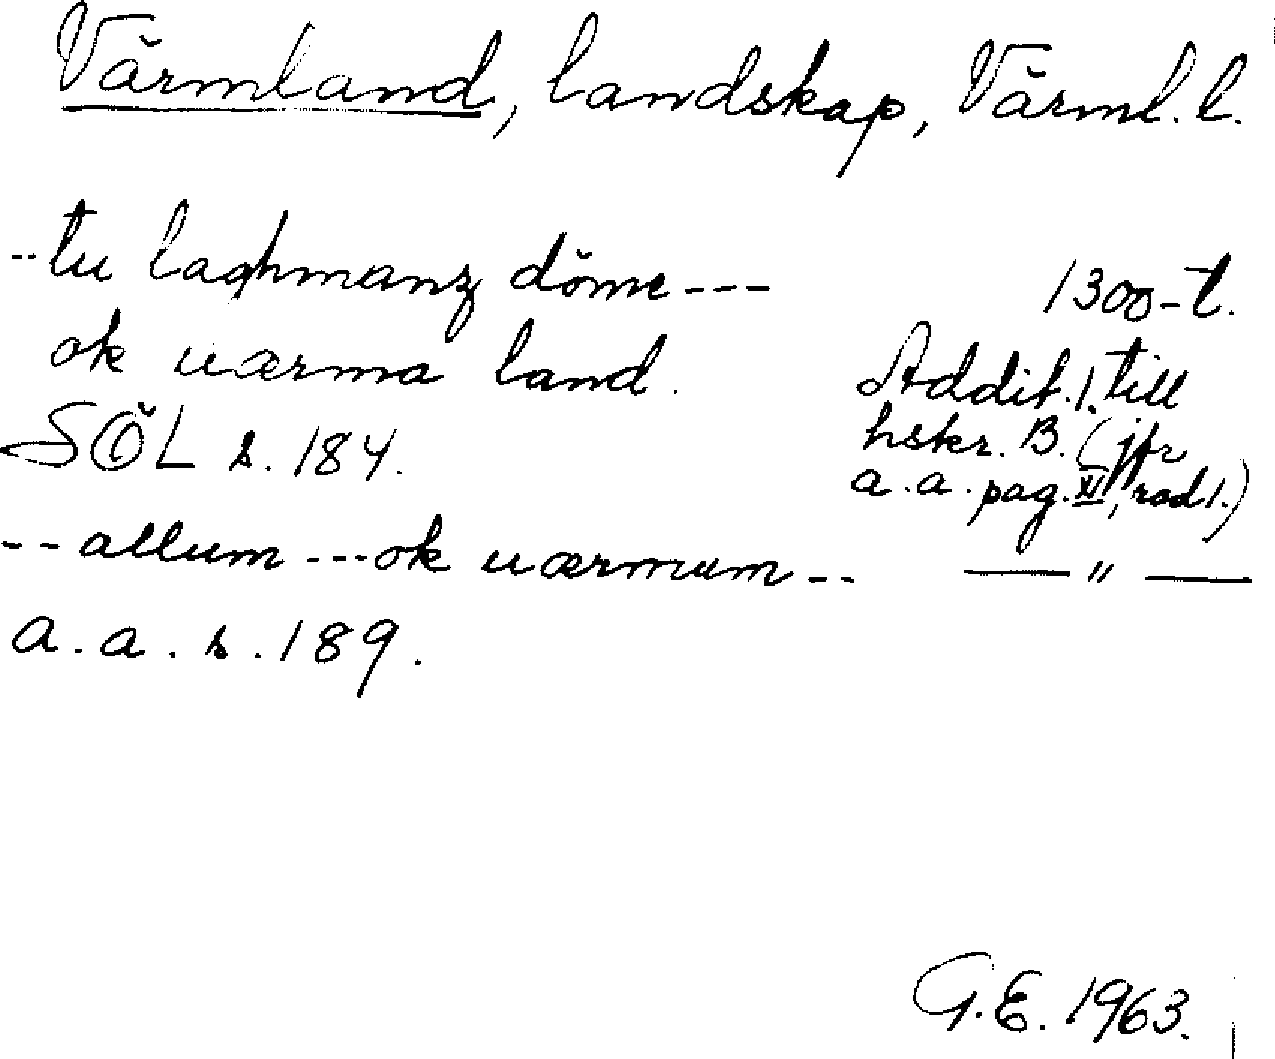 Värmland, landskap, Värml. l.
--tu laghmanz döme---
1300-t.
ok uærma land.
Addit. 1. till
hskr. B. (jfr
SÖL s. 184.
a.a. pag. XI, rad 1.)
-- allum --- ok uærmum --
— " —
a.a. s. 189.
G.E. 1963.